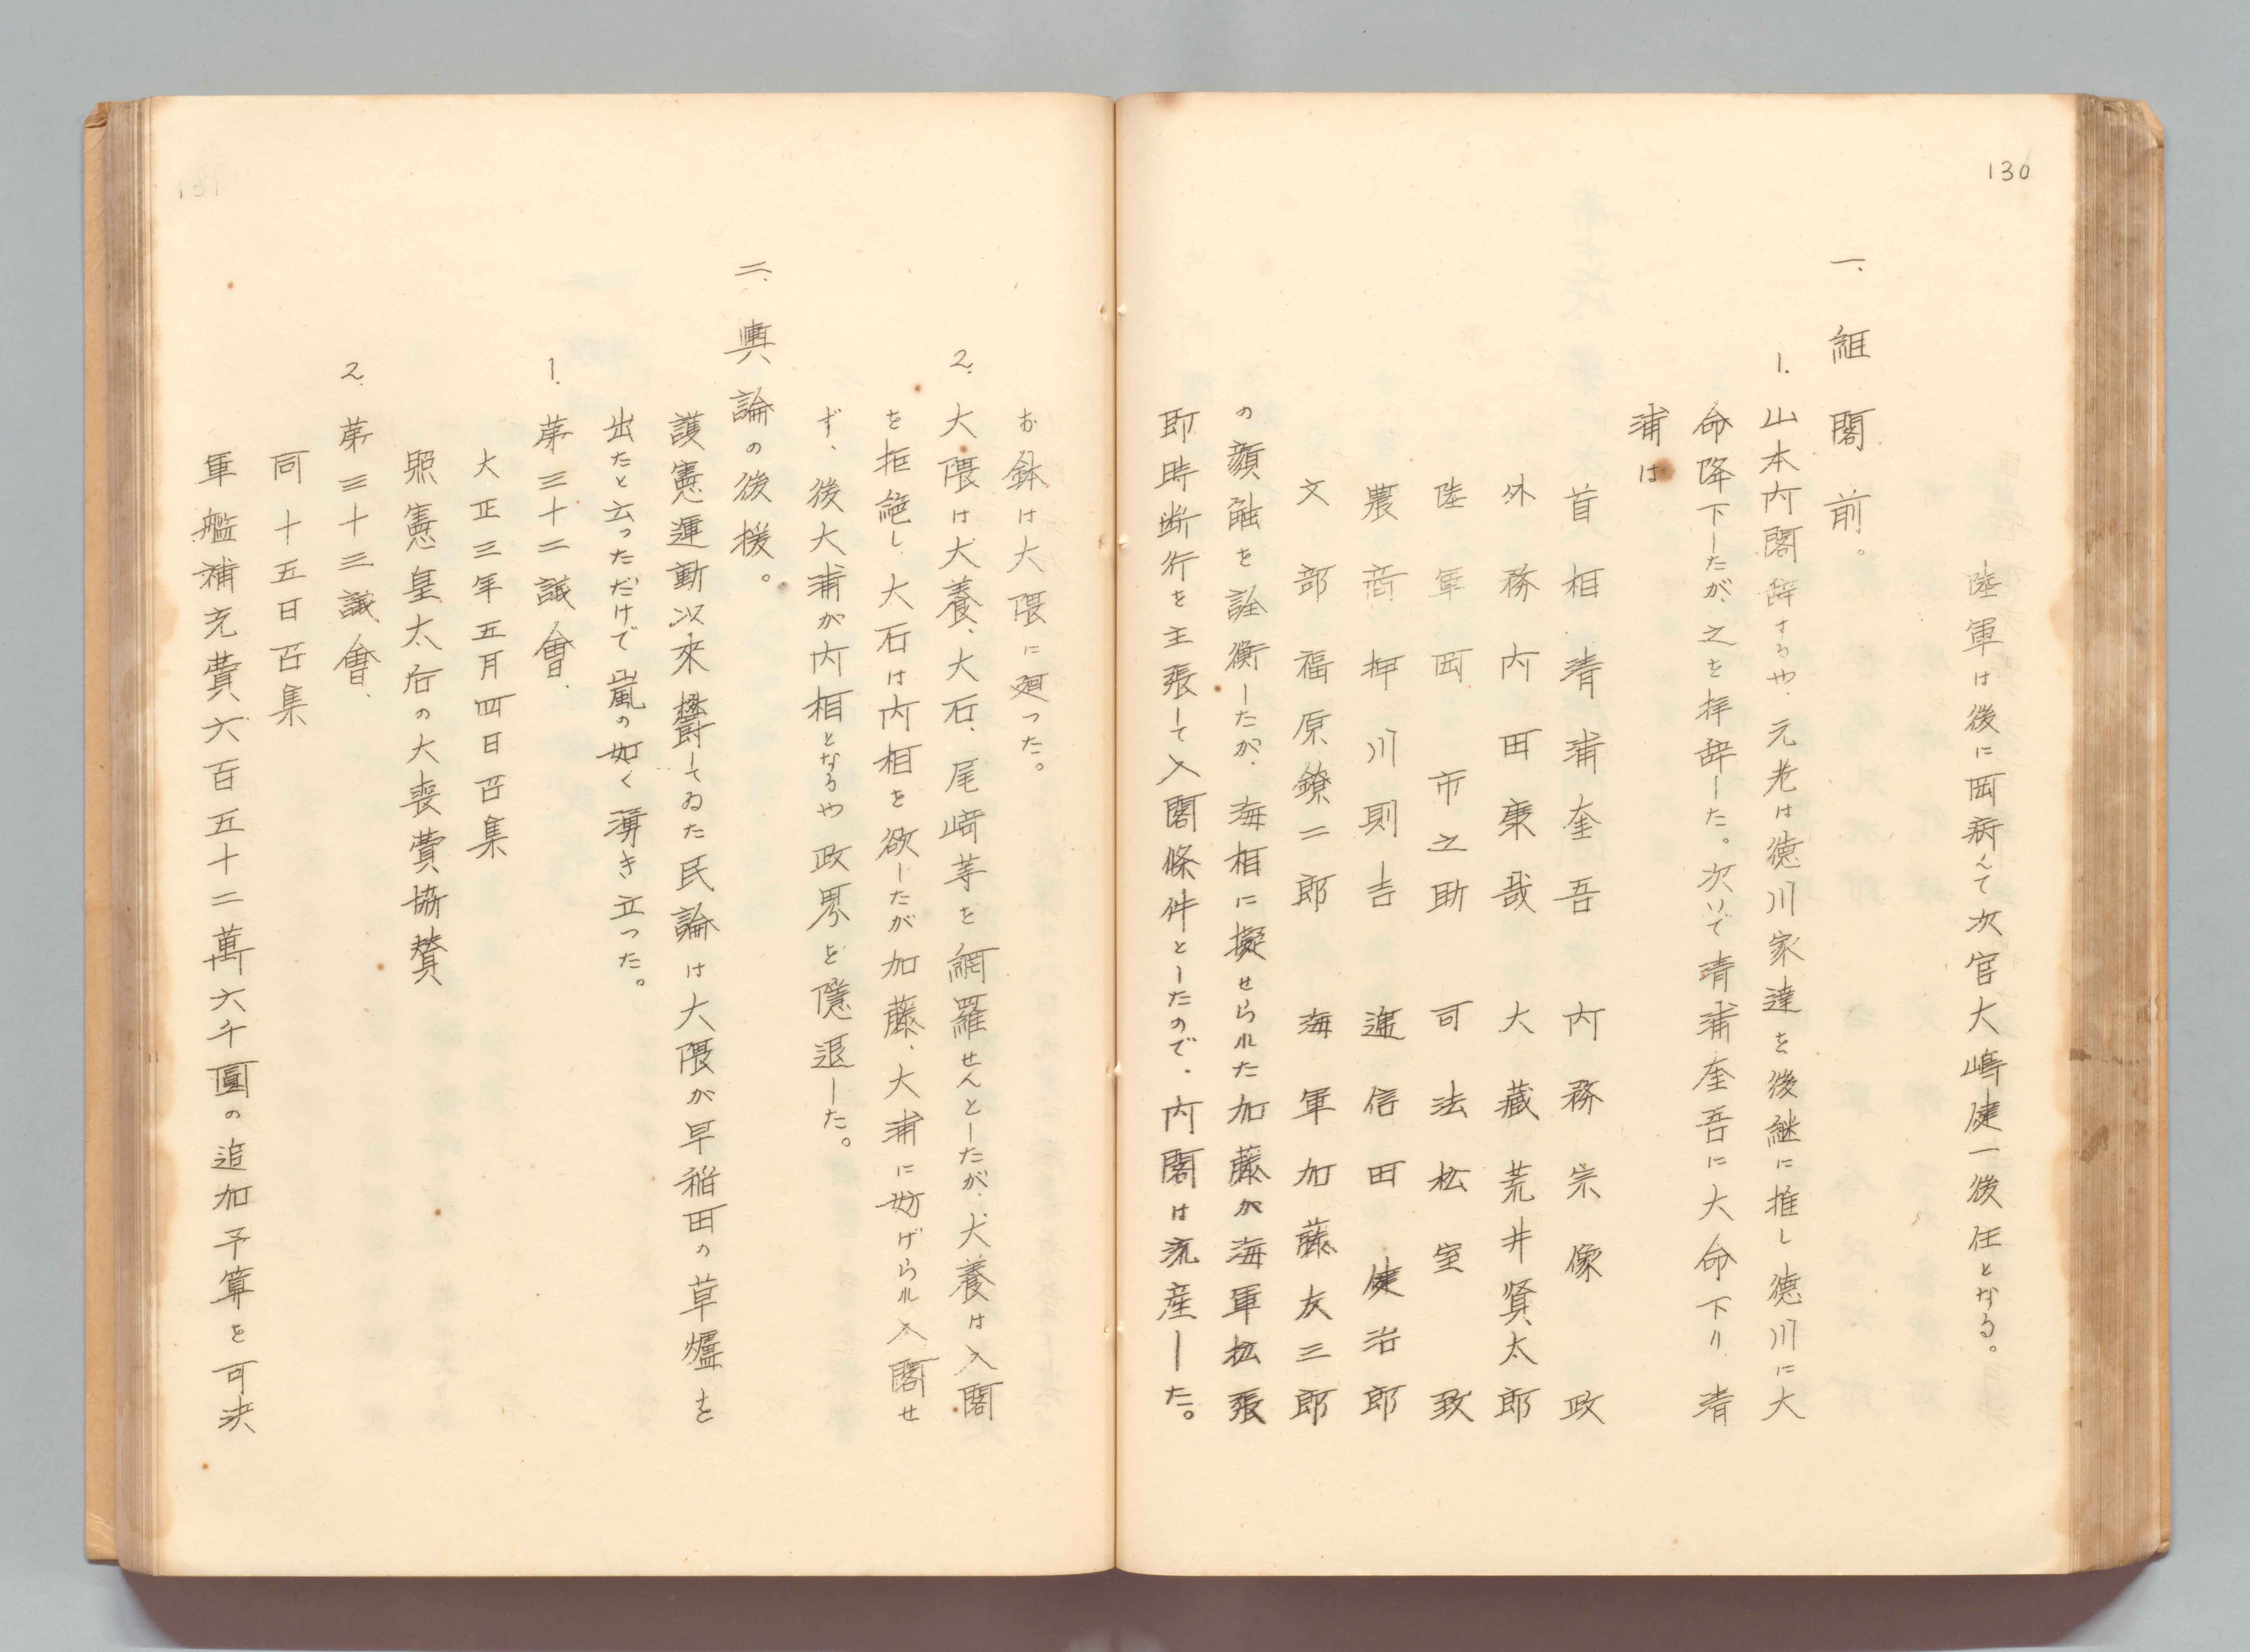 130
陸軍は後に岡病んで次官大嶋健一後任となる。
一、組閣前。
1. 山本内閣辞するや、元老は徳川家達を後継に推し徳川に大
命降下したが、之を拝辞した。次いで清浦奎吾に大命下り清
浦は
首相清浦奎吾 内務宗像政
外務内田康哉 大藏荒井賢太郎
陸軍岡市之助 司法松室致
農商押川則吉 遞信田健治郎
文部福原鐐二郎 海軍加藤友三郎
の顔触を詮衡したが、海相に擬せられた加藤が海軍拡張
即時断行を主張して入閣條件としたので、内閣は流産した。
お鉢は大隈に廻った。
2. 大隈は犬養、大石、尾崎等を網羅せんとしたが、犬養は入閣
を拒絶し、大石は内相を欲したが加藤、大浦に妨げられ入閣せ
ず、後大浦が内相となるや政界を隱退した。
二、輿論の後援。
護憲運動以來欝してゐた民論は大隈が早稲田の草爐を
出たと云っただけで嵐の如く湧き立った。
1. 第三十二議會、
大正三年五月四日召集
照憲皇太后の大喪費協賛
2. 第三十三議會、
同十五日召集
軍艦補充費六百五十二萬六千圓の追加予算を可決
131